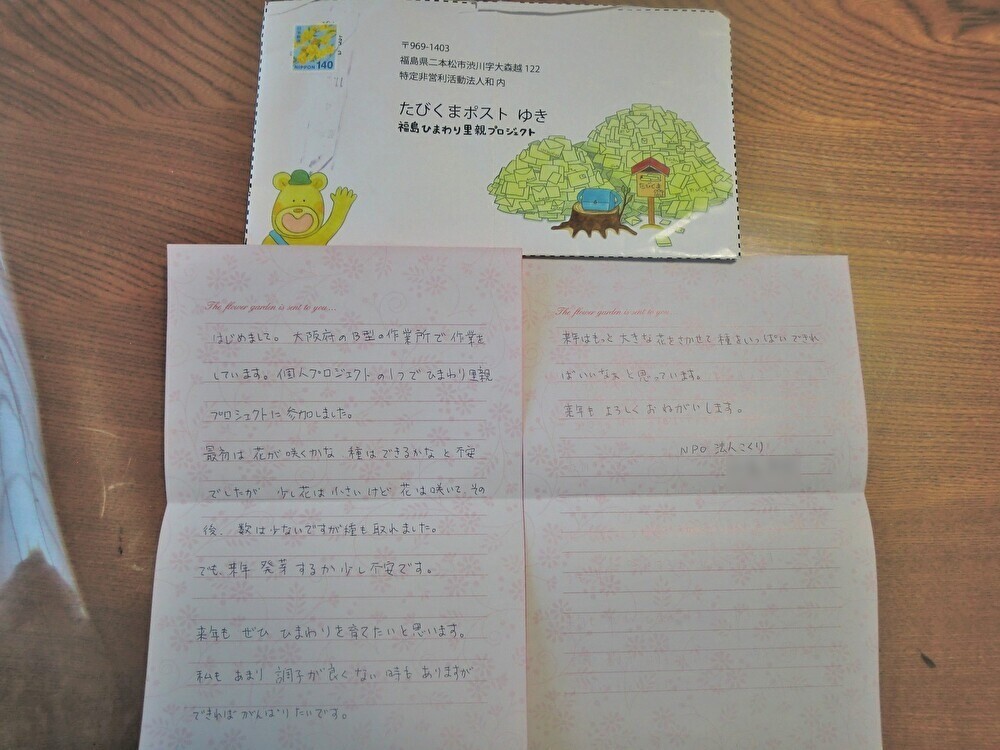 NIPPON 140
〒969-1403
福島県二本松市渋川字大森越 122
特定非営利活動法人和 内
たびくまポスト ゆき
福島ひまわり里親プロジェクト
たびくま
The flower garden is sent to you...
はじめまして。 大阪府のB型の作業所で作業を
しています。個人プロジェクトの1つでひまわり里親
プロジェクトに参加しました。
最初は 花が咲くかな 種はできるかな と不安
でしたが 少し花は小さいけど 花は咲いて、その
後、数は少ないですが種も取れました。
でも、来年 発芽するか少し不安です。
来年も ぜひ ひまわりを育てたいと思います。
私も あまり 調子が良くない時もありますが
できればがんばりたいです。
The flower garden is sent to you...
来年はもっと大きな花をさかせて種をいっぱいできれ
ばいいなぁと思っています。
来年もよろしくおねがいします。
NPO 法人こくり